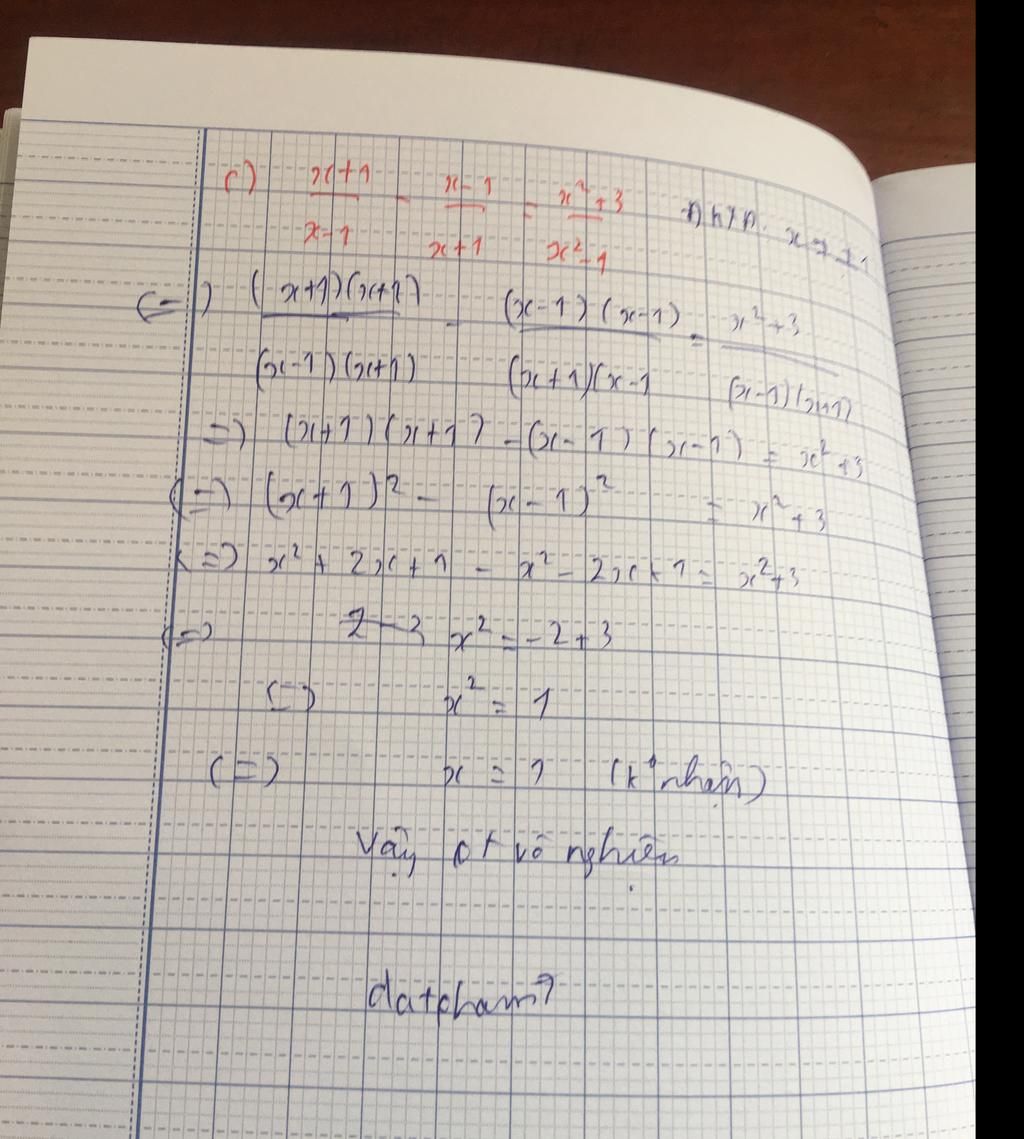 c) x+1/x-1 - x-1/x+1 = x²+3/x²-1 x ≠ ±1
(=) (x+1)(x+1)/(x-1)(x+1) - (x-1)(x-1)/(x+1)(x-1 = x²+3/(x-1)(x+1)
=) (x+1)(x+1) - (x-1)(x-1) = x²+3
(=) (x+1)² - (x-1)² = x²+3
(=) x² + 2x + 1 - x² - 2x + 1 = x²+3
(=) x² = -2+3
(=) x² = 1
(=) x = 1 (k° nhận)
Vậy pt vô nghiệm
datpham7